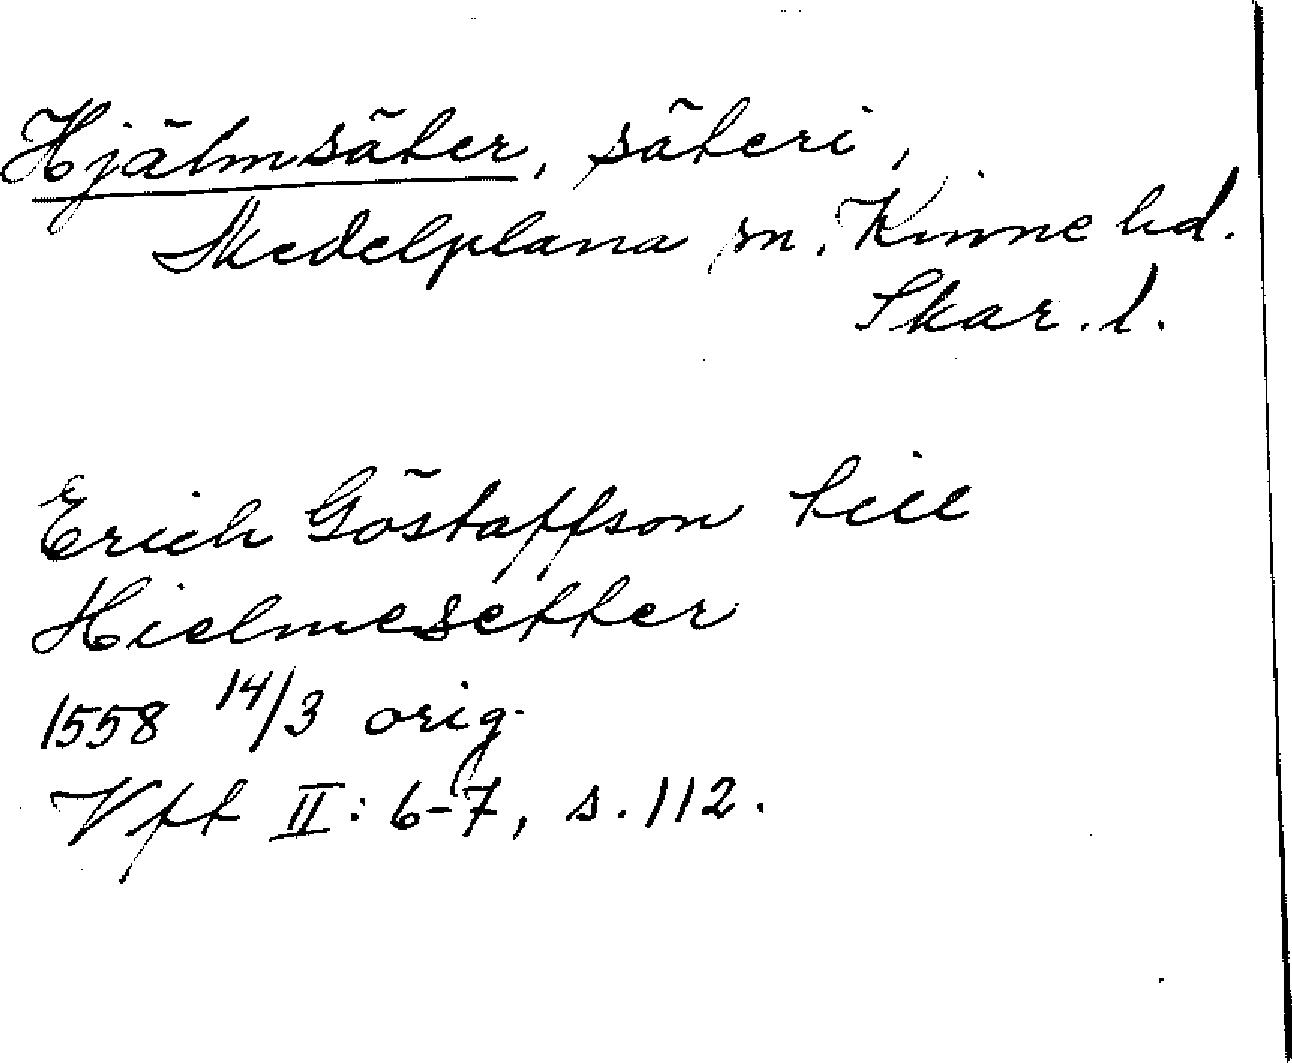 Hjälmsäter, säteri,
Medelplana sn. Kinne hd.
Skar. l.
Erich Göstaffson till
Hielmesetter
1558 14/3 orig.
Vft II: 6-7, s. 112.